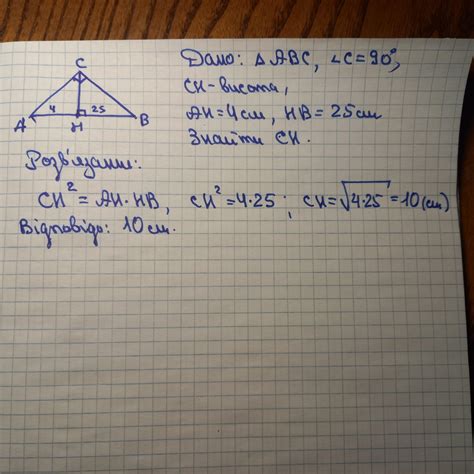 C
4
25
A
H
B
Дано: △ABC, ∠C=90°,
CH-висота,
AH=4см, HB=25см
Знайти CH.
Розв'язання:
CH²=AH·HB, CH²=4·25; CH=√4·25=10(см)
Відповідь: 10 см.